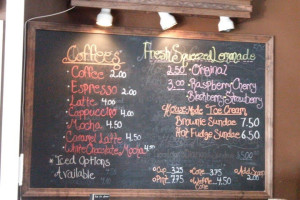 Coffee's
• Coffee 2.00
• Espresso 2.00
• Latte 4.00
• Cappuccino 4.00
• Mocha 4.50
• Caramel Latte 4.50
• White Chocolate Mocha 4.50
* Iced Options
Available
Fresh Squeezed Lemonade
2.50 • Original
3.00 • Raspberry, Cherry
Blackberry, Strawberry
HouseMade Ice Cream
Brownie Sundae 7.50
Hot Fudge Sundae 6.50
• Cup 3.25
• Pint 7.25
• Cone 3.75
• Waffle Cone 4.50